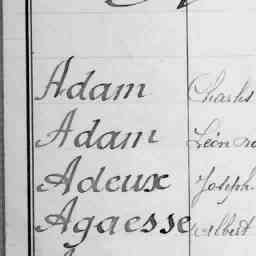 Adam Charles
Adam Léon
Adeux Joseph
Agaesse Albert